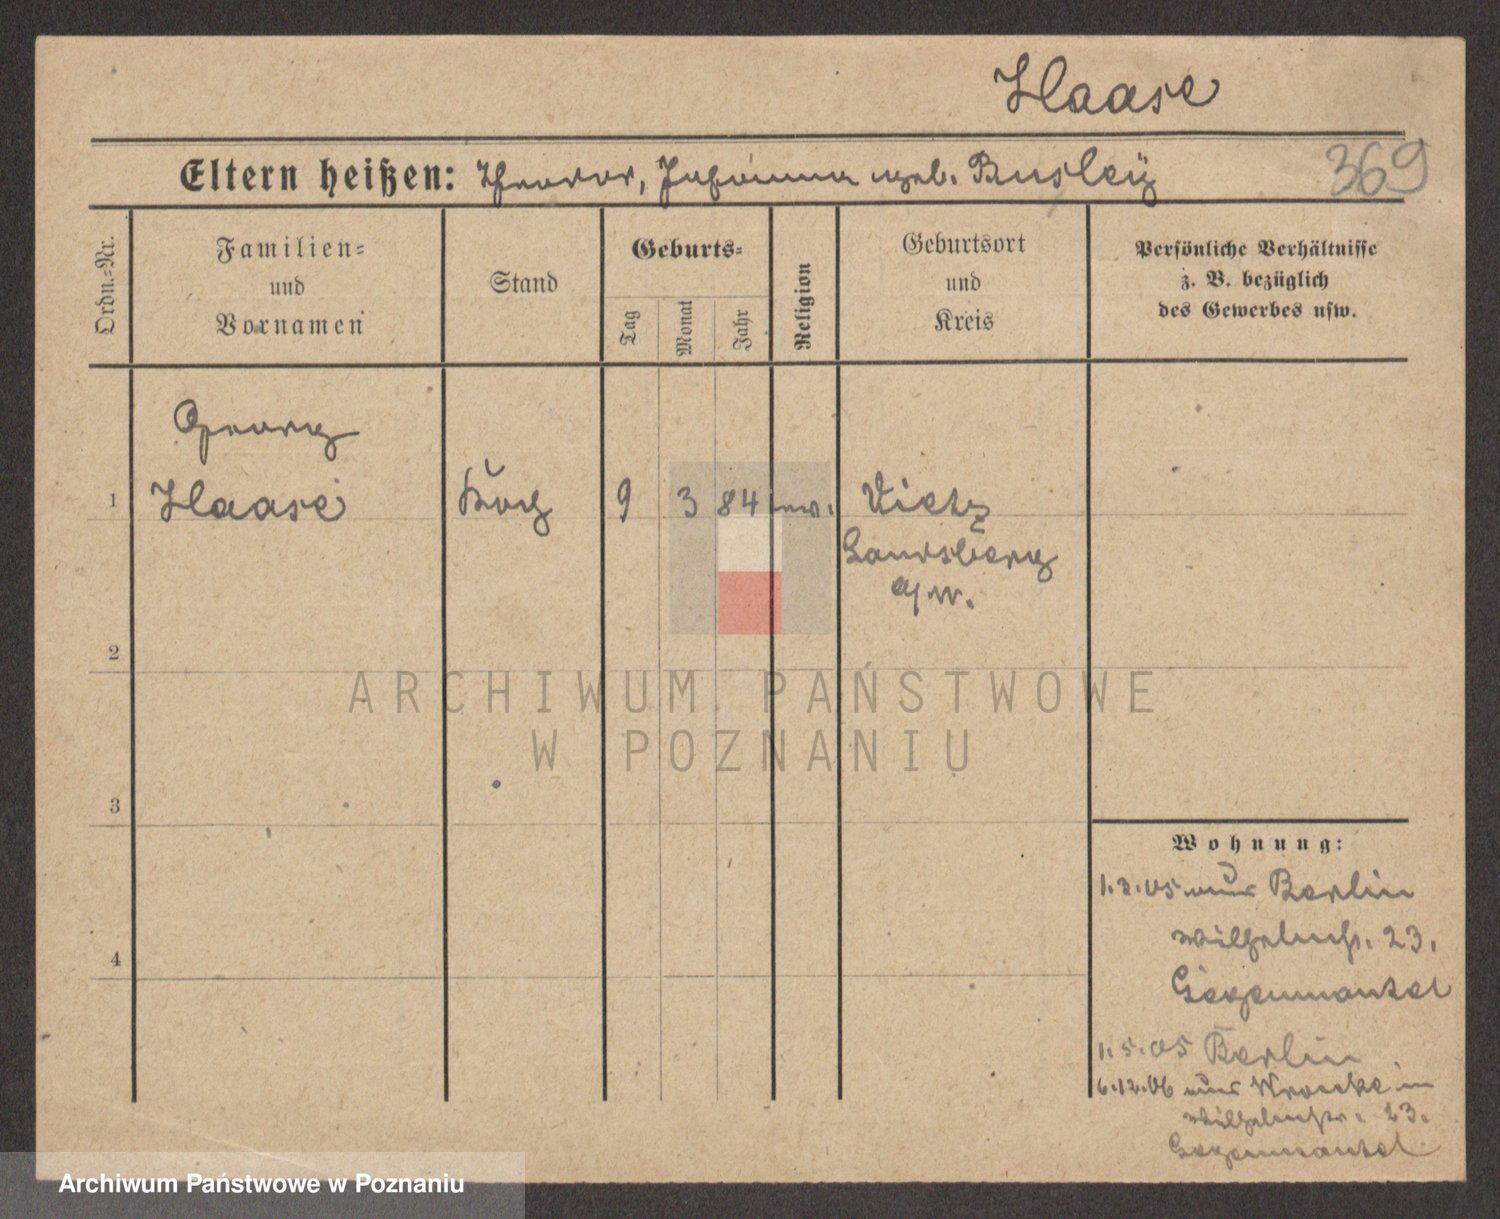 Haase
Eltern heißen: Theodor, Johanna geb. Busley
369
Ordn.=Nr.
Familien=
und
Vornamen
Stand
Geburts=
Tag
Monat
Jahr
Religion
Geburtsort
und
Kreis
Persönliche Verhältnisse
z. B. bezüglich
des Gewerbes usw.
Georg
1 Haase Koch 9 3 84 ev. Vietz
Landsberg
a/W.
2
ARCHIWUM PAŃSTWOWE
W POZNANIU
3
4
Wohnung:
1.3.05 aus Berlin
Wilhelmstr. 23.
1.5.05 Berlin
6.12.06 aus in
Wilhelmstr. 23.
Archiwum Państwowe w Poznaniu